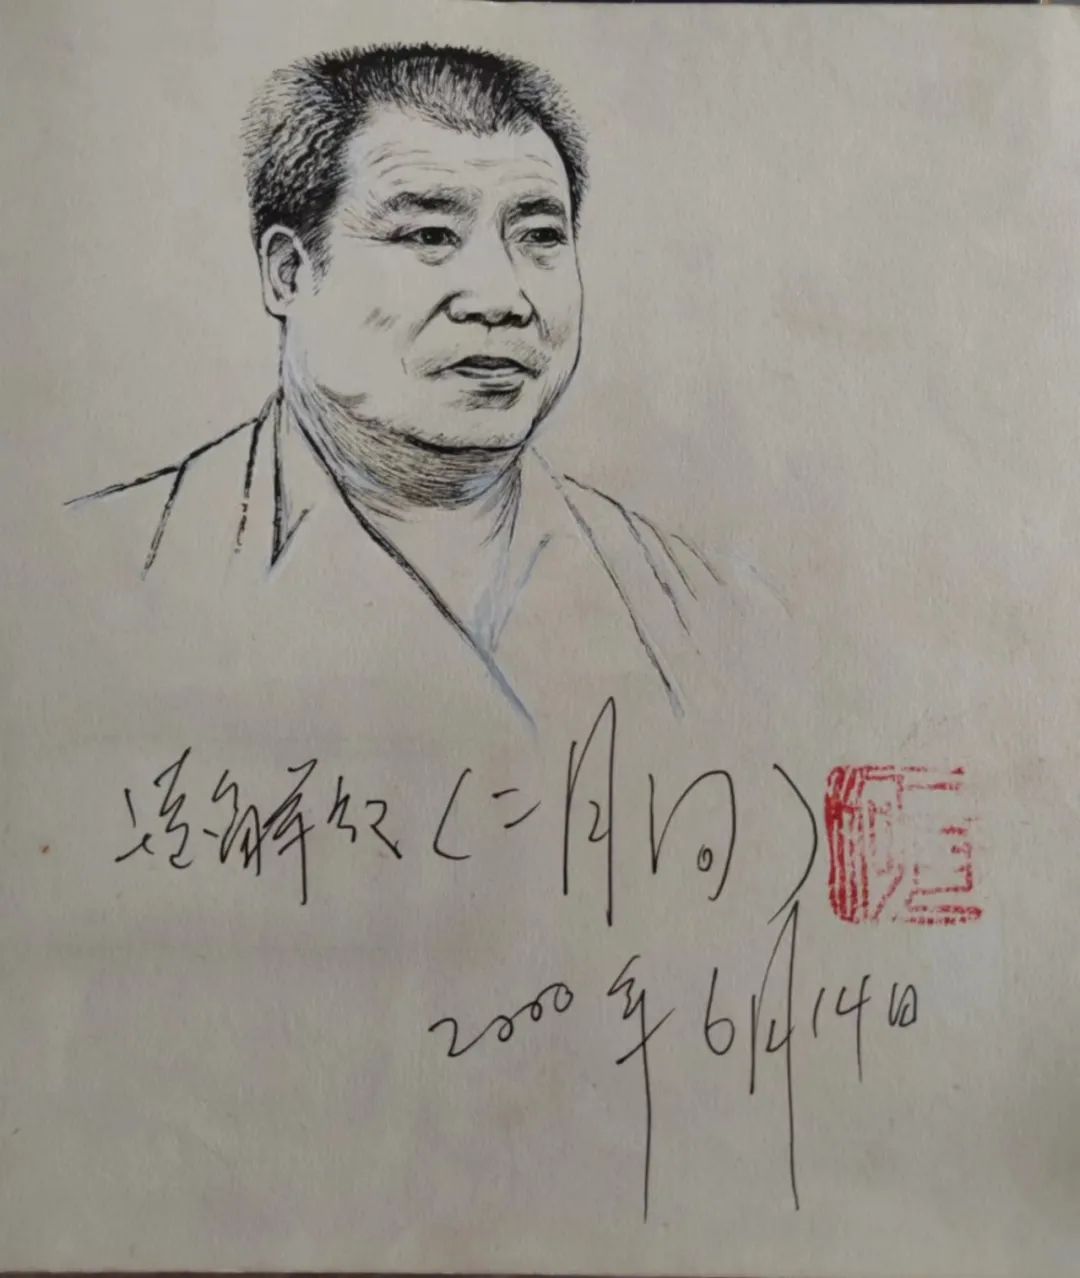 凌解放（二月河）
2000年6月14日